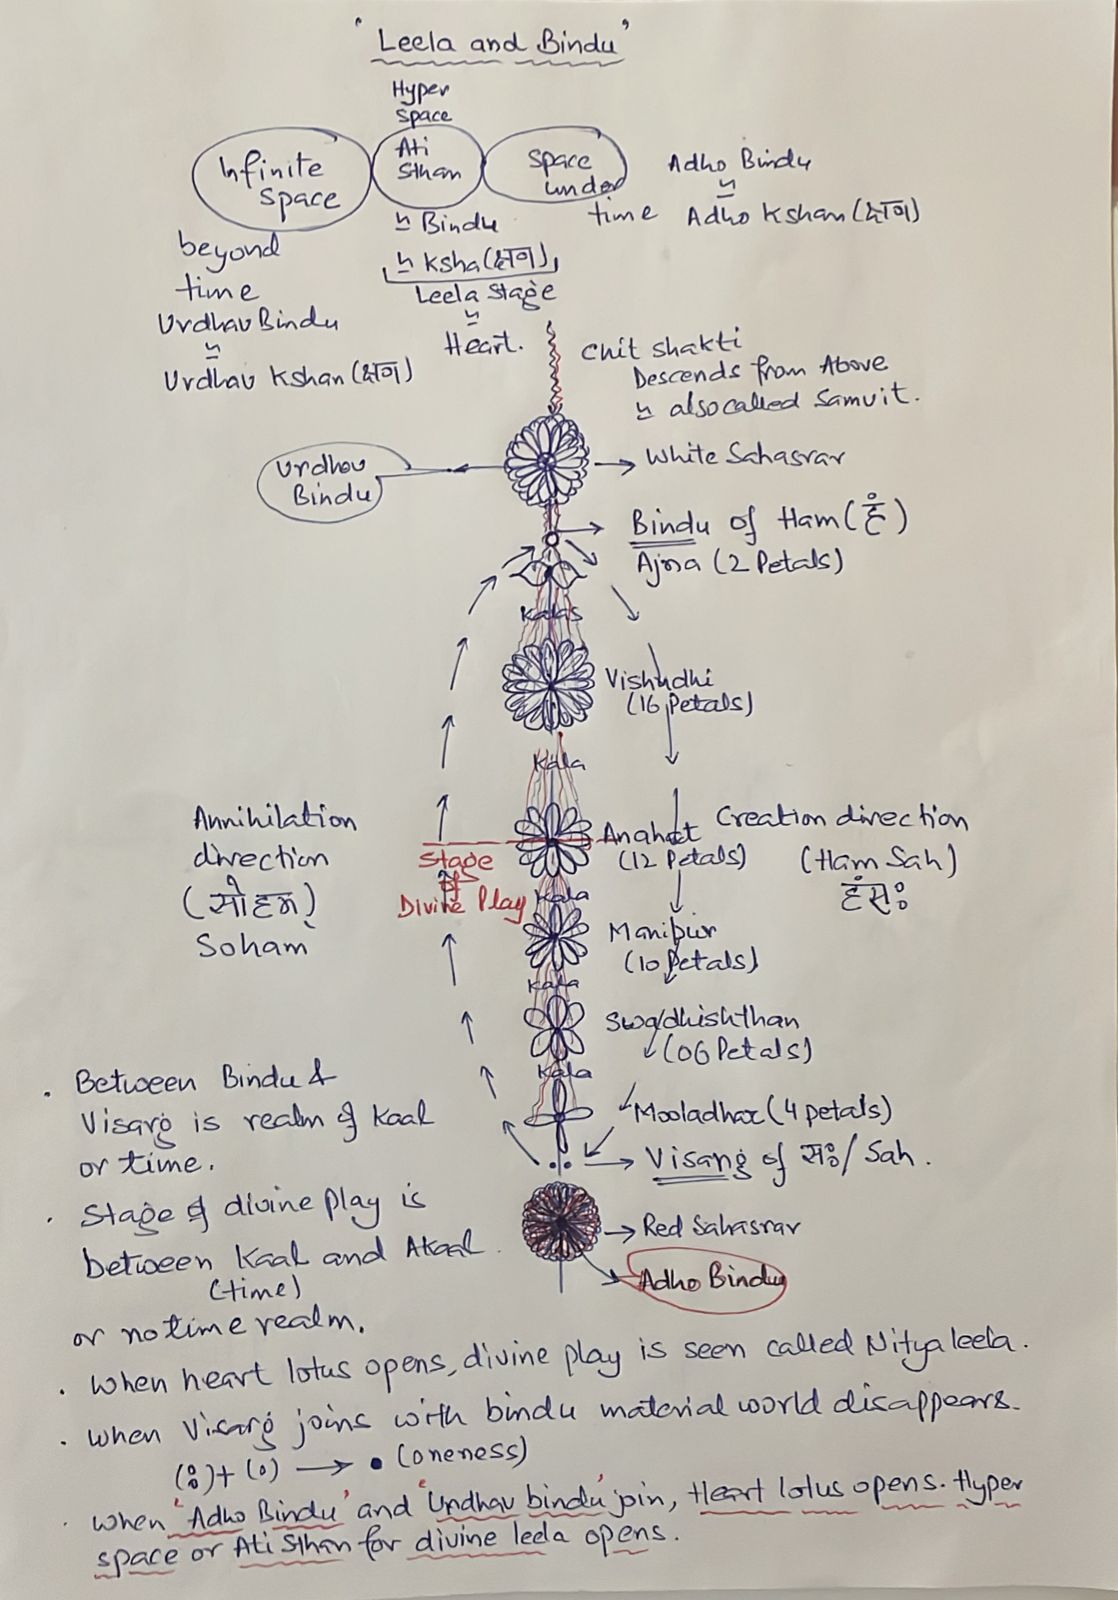 'Leela and Bindu'
Hyper
Space
Infinite
Space
Ati
Sthan
Space
under
time
beyond
time
Urdhav Bindu
≌
Urdhav Kshan (क्षण)
≌ Bindu
≌ Ksha (क्षण)
Leela Stage
≌
Heart.
Adho Bindu
≌
Adho Kshan (क्षण)
Chit Shakti
Descends from Above
≌ also called Samvit.
Urdhav
Bindu
White Sahasrar
Bindu of Ham (हं)
Ajna (2 Petals)
Kalas
Vishudhi
(16 Petals)
Kala
Anahat
(12 Petals)
Creation direction
(Ham Sah)
हंसः
Annihilation
direction
(सोहम्)
Soham
Stage
of
Divine Play
Kala
Manipur
(10 Petals)
Kala
Swadhishthan
(06 Petals)
Kala
Mooladhar (4 petals)
Visarg of सः/ Sah.
Red Sahasrar
Adho Bindu
. Between Bindu &
Visarg is realm of Kaal
or time.
. Stage of divine play is
between Kaal and Akaal.
(time)
or no time realm.
. When heart lotus opens, divine play is seen called Nitya leela.
. When Visarg joins with bindu material world disappears.
(ः) + (०) → • (oneness)
. When 'Adho Bindu' and 'Urdhav bindu' join, Heart lotus opens. Hyper
space or Ati Sthan for divine leela opens.